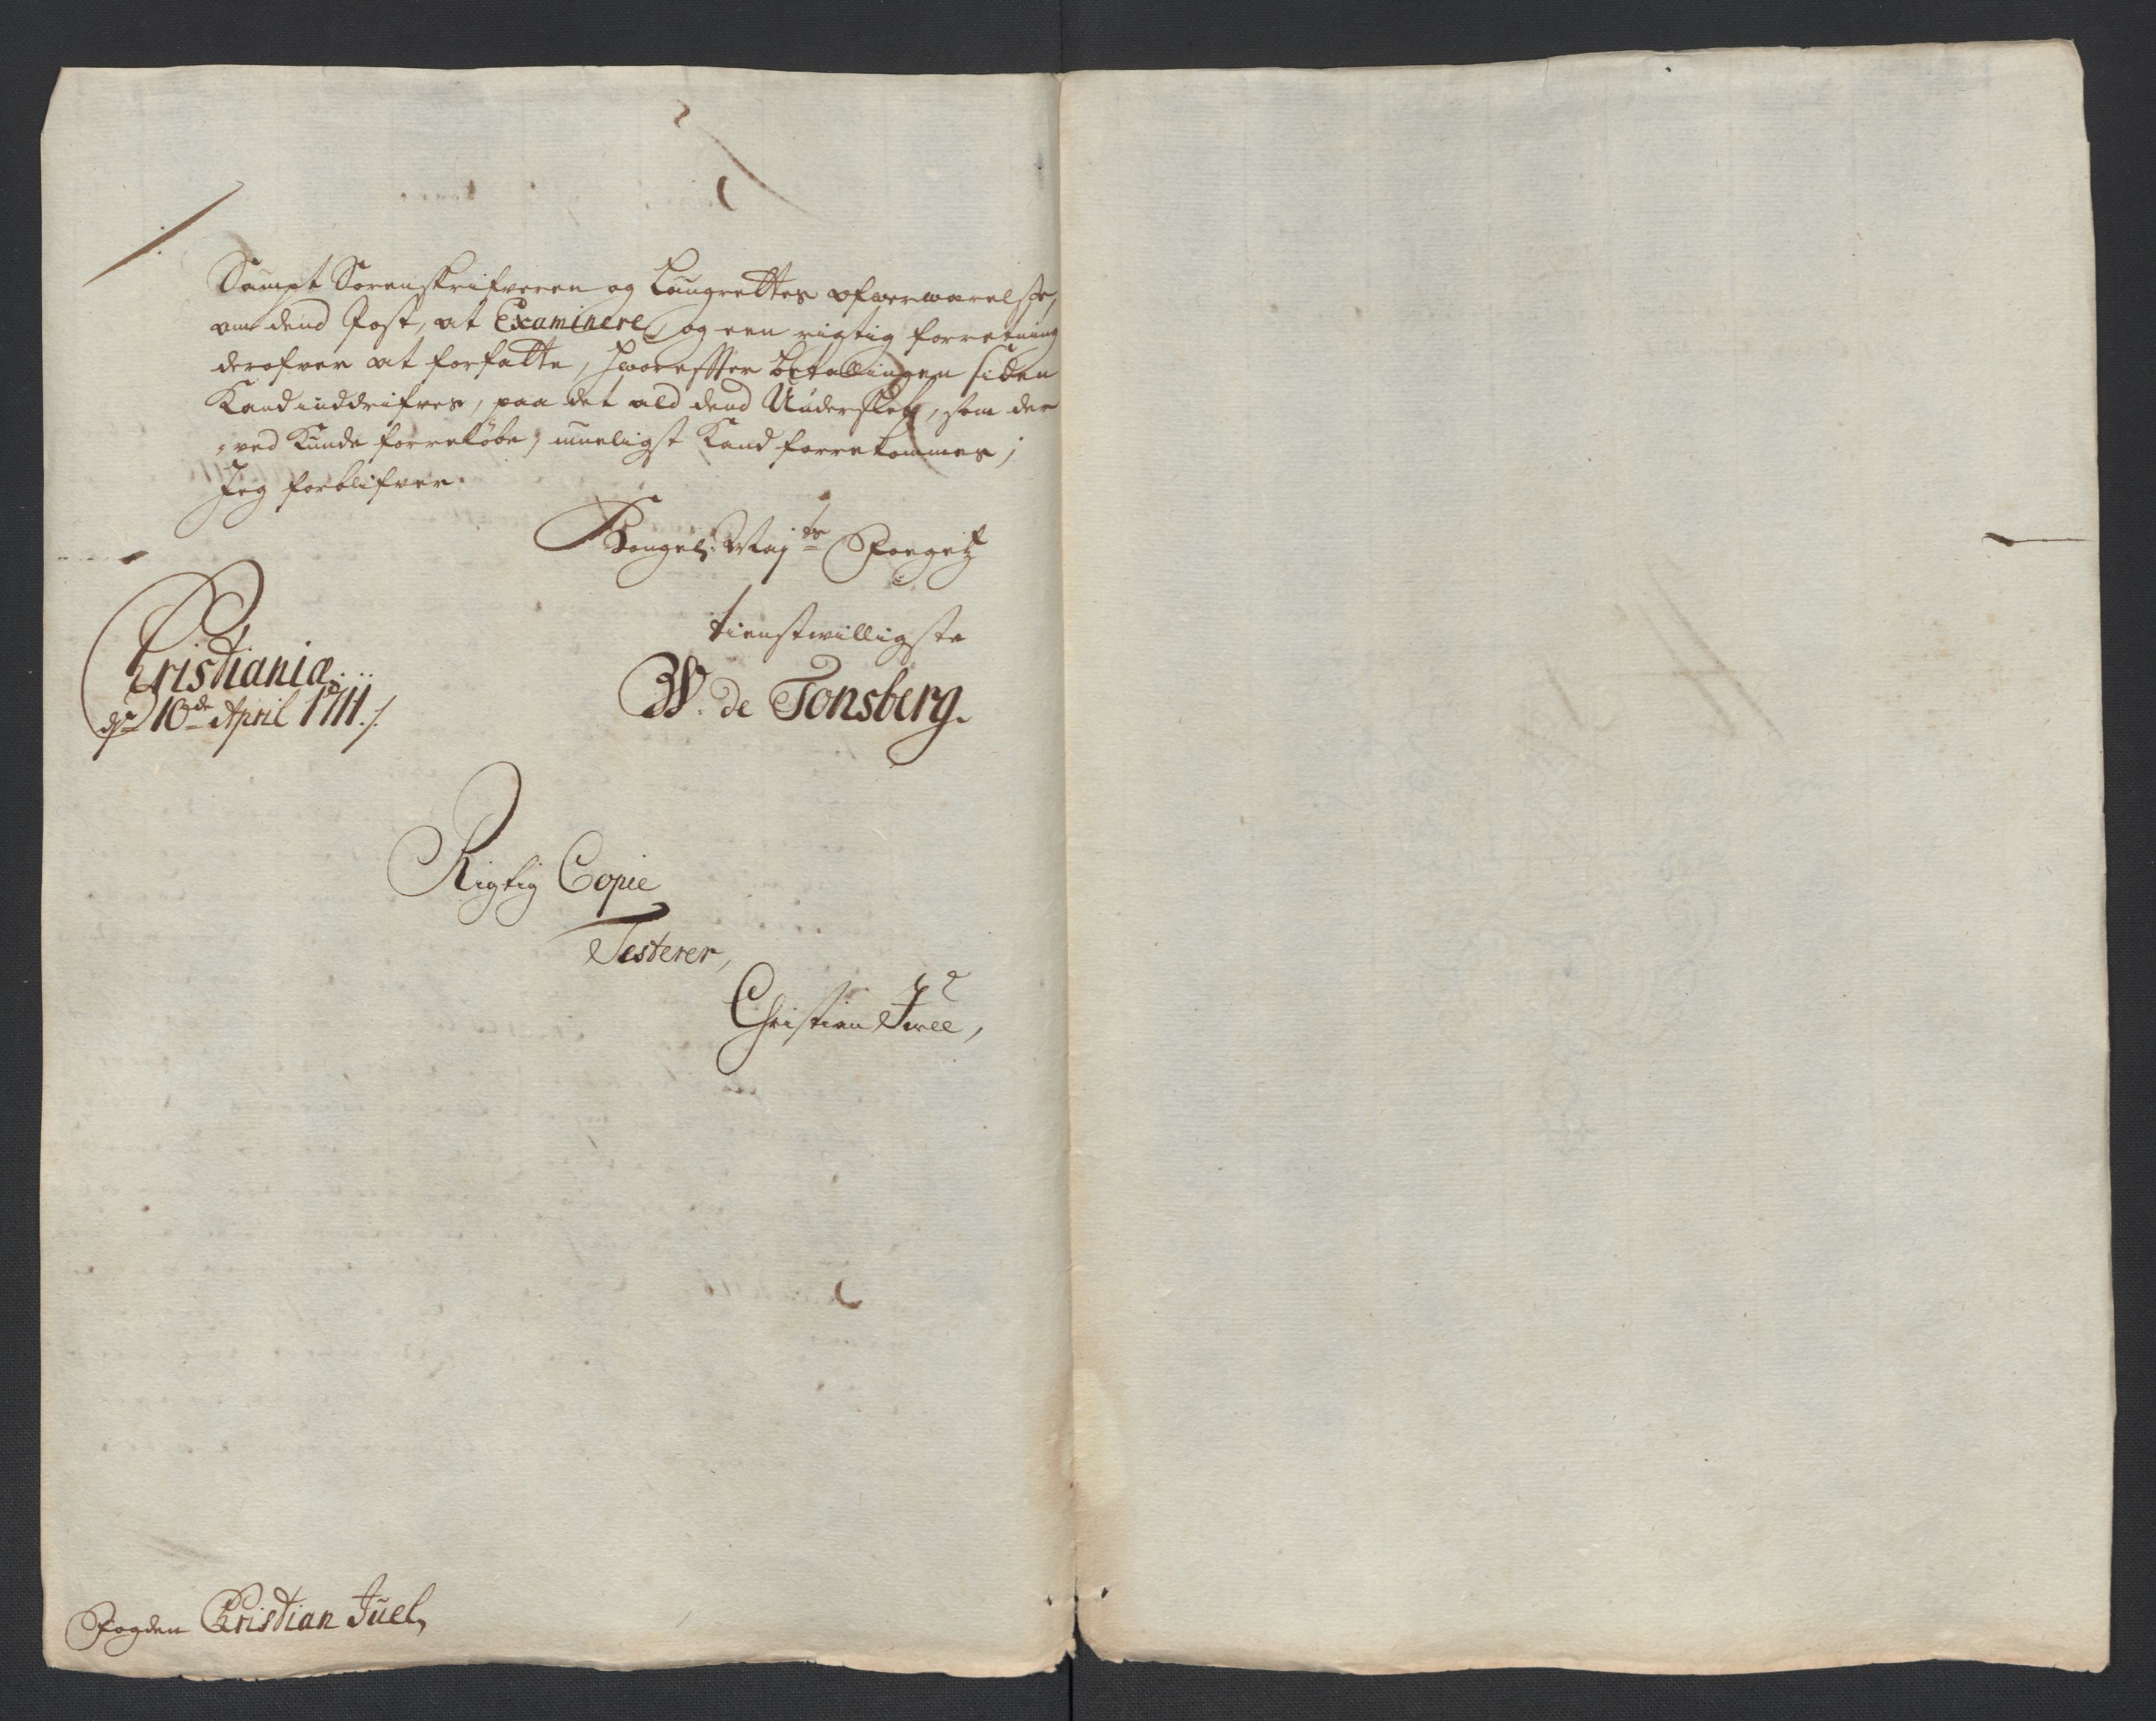 Sampt Sorenskrifveren og Laugrettes ofverværelse,
om dend Post, at Examinere, og een rigtig forretning
derofver at forfatte, hvorefter betallingen siden
Kand inddrifves, paa det ald dend Underslæb, som der
„ved Kunde forreløbe, mueligst Kand forrekommes;
Jeg forblifver.
Kongel: Maj:ts Foegetz
tienstwilligste
Christianiæ
d 10de April 1711./.
W. de Tonsberg.
Rigtig Copie
Testerer,
Christian Juel,
Fogden Christian Juel,